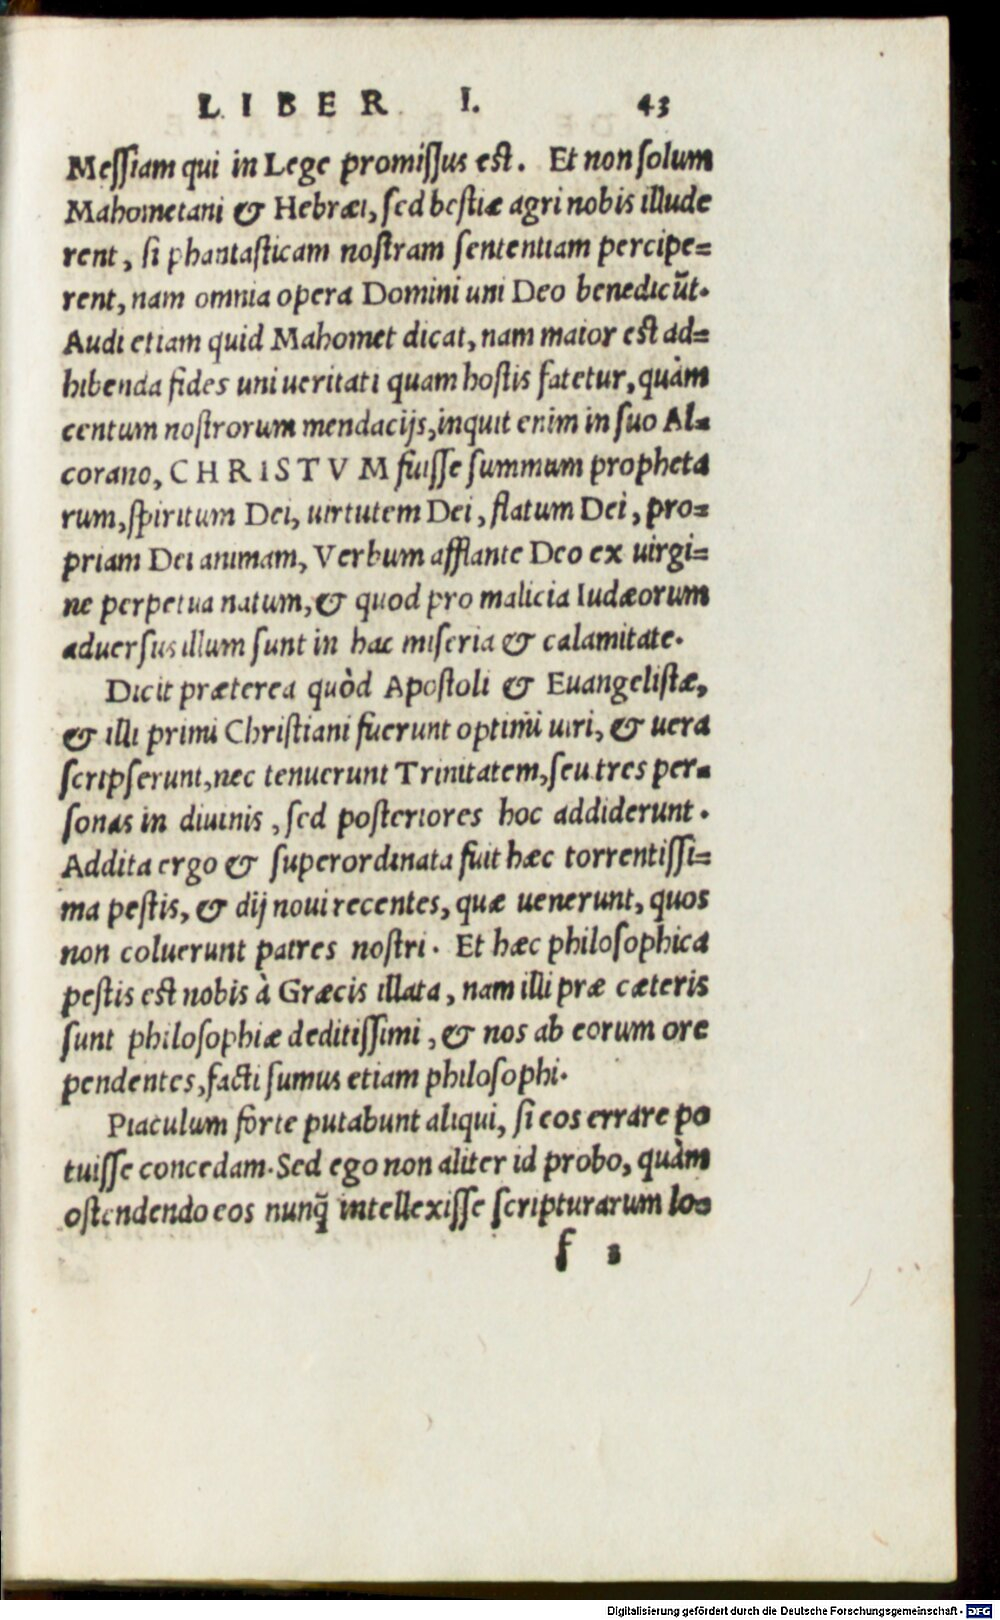 LIBER I. 43
Meſſiam qui in Lege promiſſus est. Et non ſolum
Mahometani & Hebræi, ſed bestiæ agri nobis illude
rent, ſi phantasticam nostram ſententiam percipe=
rent, nam omnia opera Domini uni Deo benedicũt.
Audi etiam quid Mahomet dicat, nam maior est ad=
hibenda fides uni ueritati quam hostis fatetur, quàm
centum nostrorum mendacijs, inquit enim in ſuo Al=
corano, CHRISTVM fuiſſe ſummum propheta
rum, ſpiritum Dei, uirtutem Dei, flatum Dei, pro=
priam Dei animam, Verbum afflante Deo ex uirgi=
ne perpetua natum, & quod pro malicia Iudæorum
aduerſus illum ſunt in hac miſeria & calamitate.
Dicit præterea quòd Apostoli & Euangelistæ,
& illi primi Christiani fuerunt optimi uiri, & uera
ſcripſerunt, nec tenuerunt Trinitatem, ſeu tres per=
ſonas in diuinis, ſed posteriores hoc addiderunt.
Addita ergo & ſuperordinata fuit hæc torrentiſſi=
ma pestis, & dij noui recentes, quæ uenerunt, quos
non coluerunt patres nostri. Et hæc philoſophica
pestis est nobis à Græcis illata, nam illi præ cæteris
ſunt philoſophiæ deditiſſimi, & nos ab eorum ore
pendentes, facti ſumus etiam philoſophi.
Piaculum forte putabunt aliqui, ſi eos errare po
tuiſſe concedam. Sed ego non aliter id probo, quàm
ostendendo eos nunq̃ intellexiſſe ſcripturarum lo=
f 3
Digitalisierung gefördert durch die Deutsche Forschungsgemeinschaft - DFG